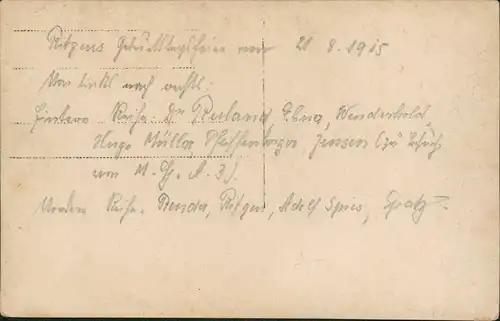 Ritgens Geburtstagsfeier am 21 8. 1915
Von links nach rechts:
Hintere Reihe. Dr Ruland, Ebner, Wenderhold,
Hugo Müller, Pfeffenberger, Jensen (zu Besuch
von M. G. A. 3).
Vordere Reihe. Benda, Ritgen, Adolf Spies, Spatz.